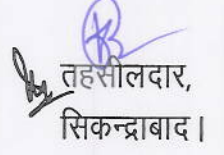 तहसीलदार,
सिकन्द्राबाद।